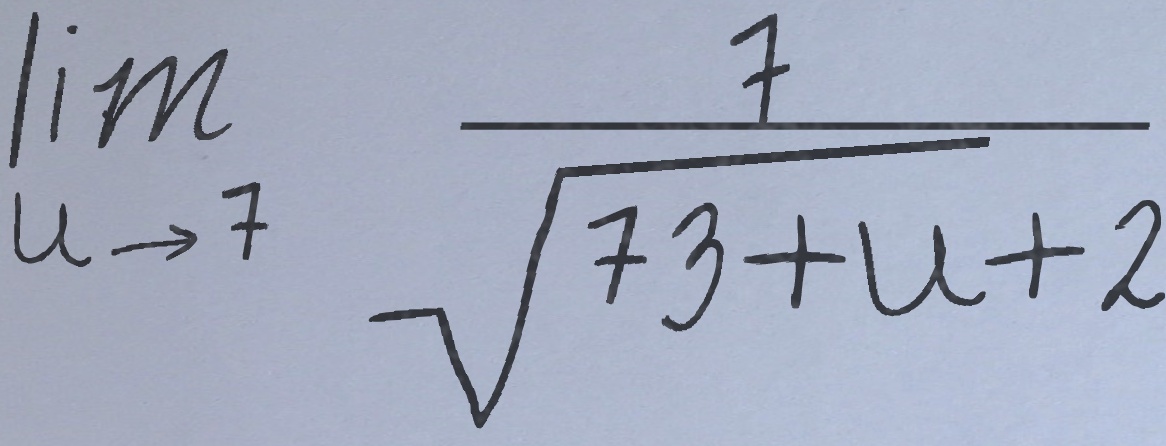 lim u→7 7/(√(73+u)+2)